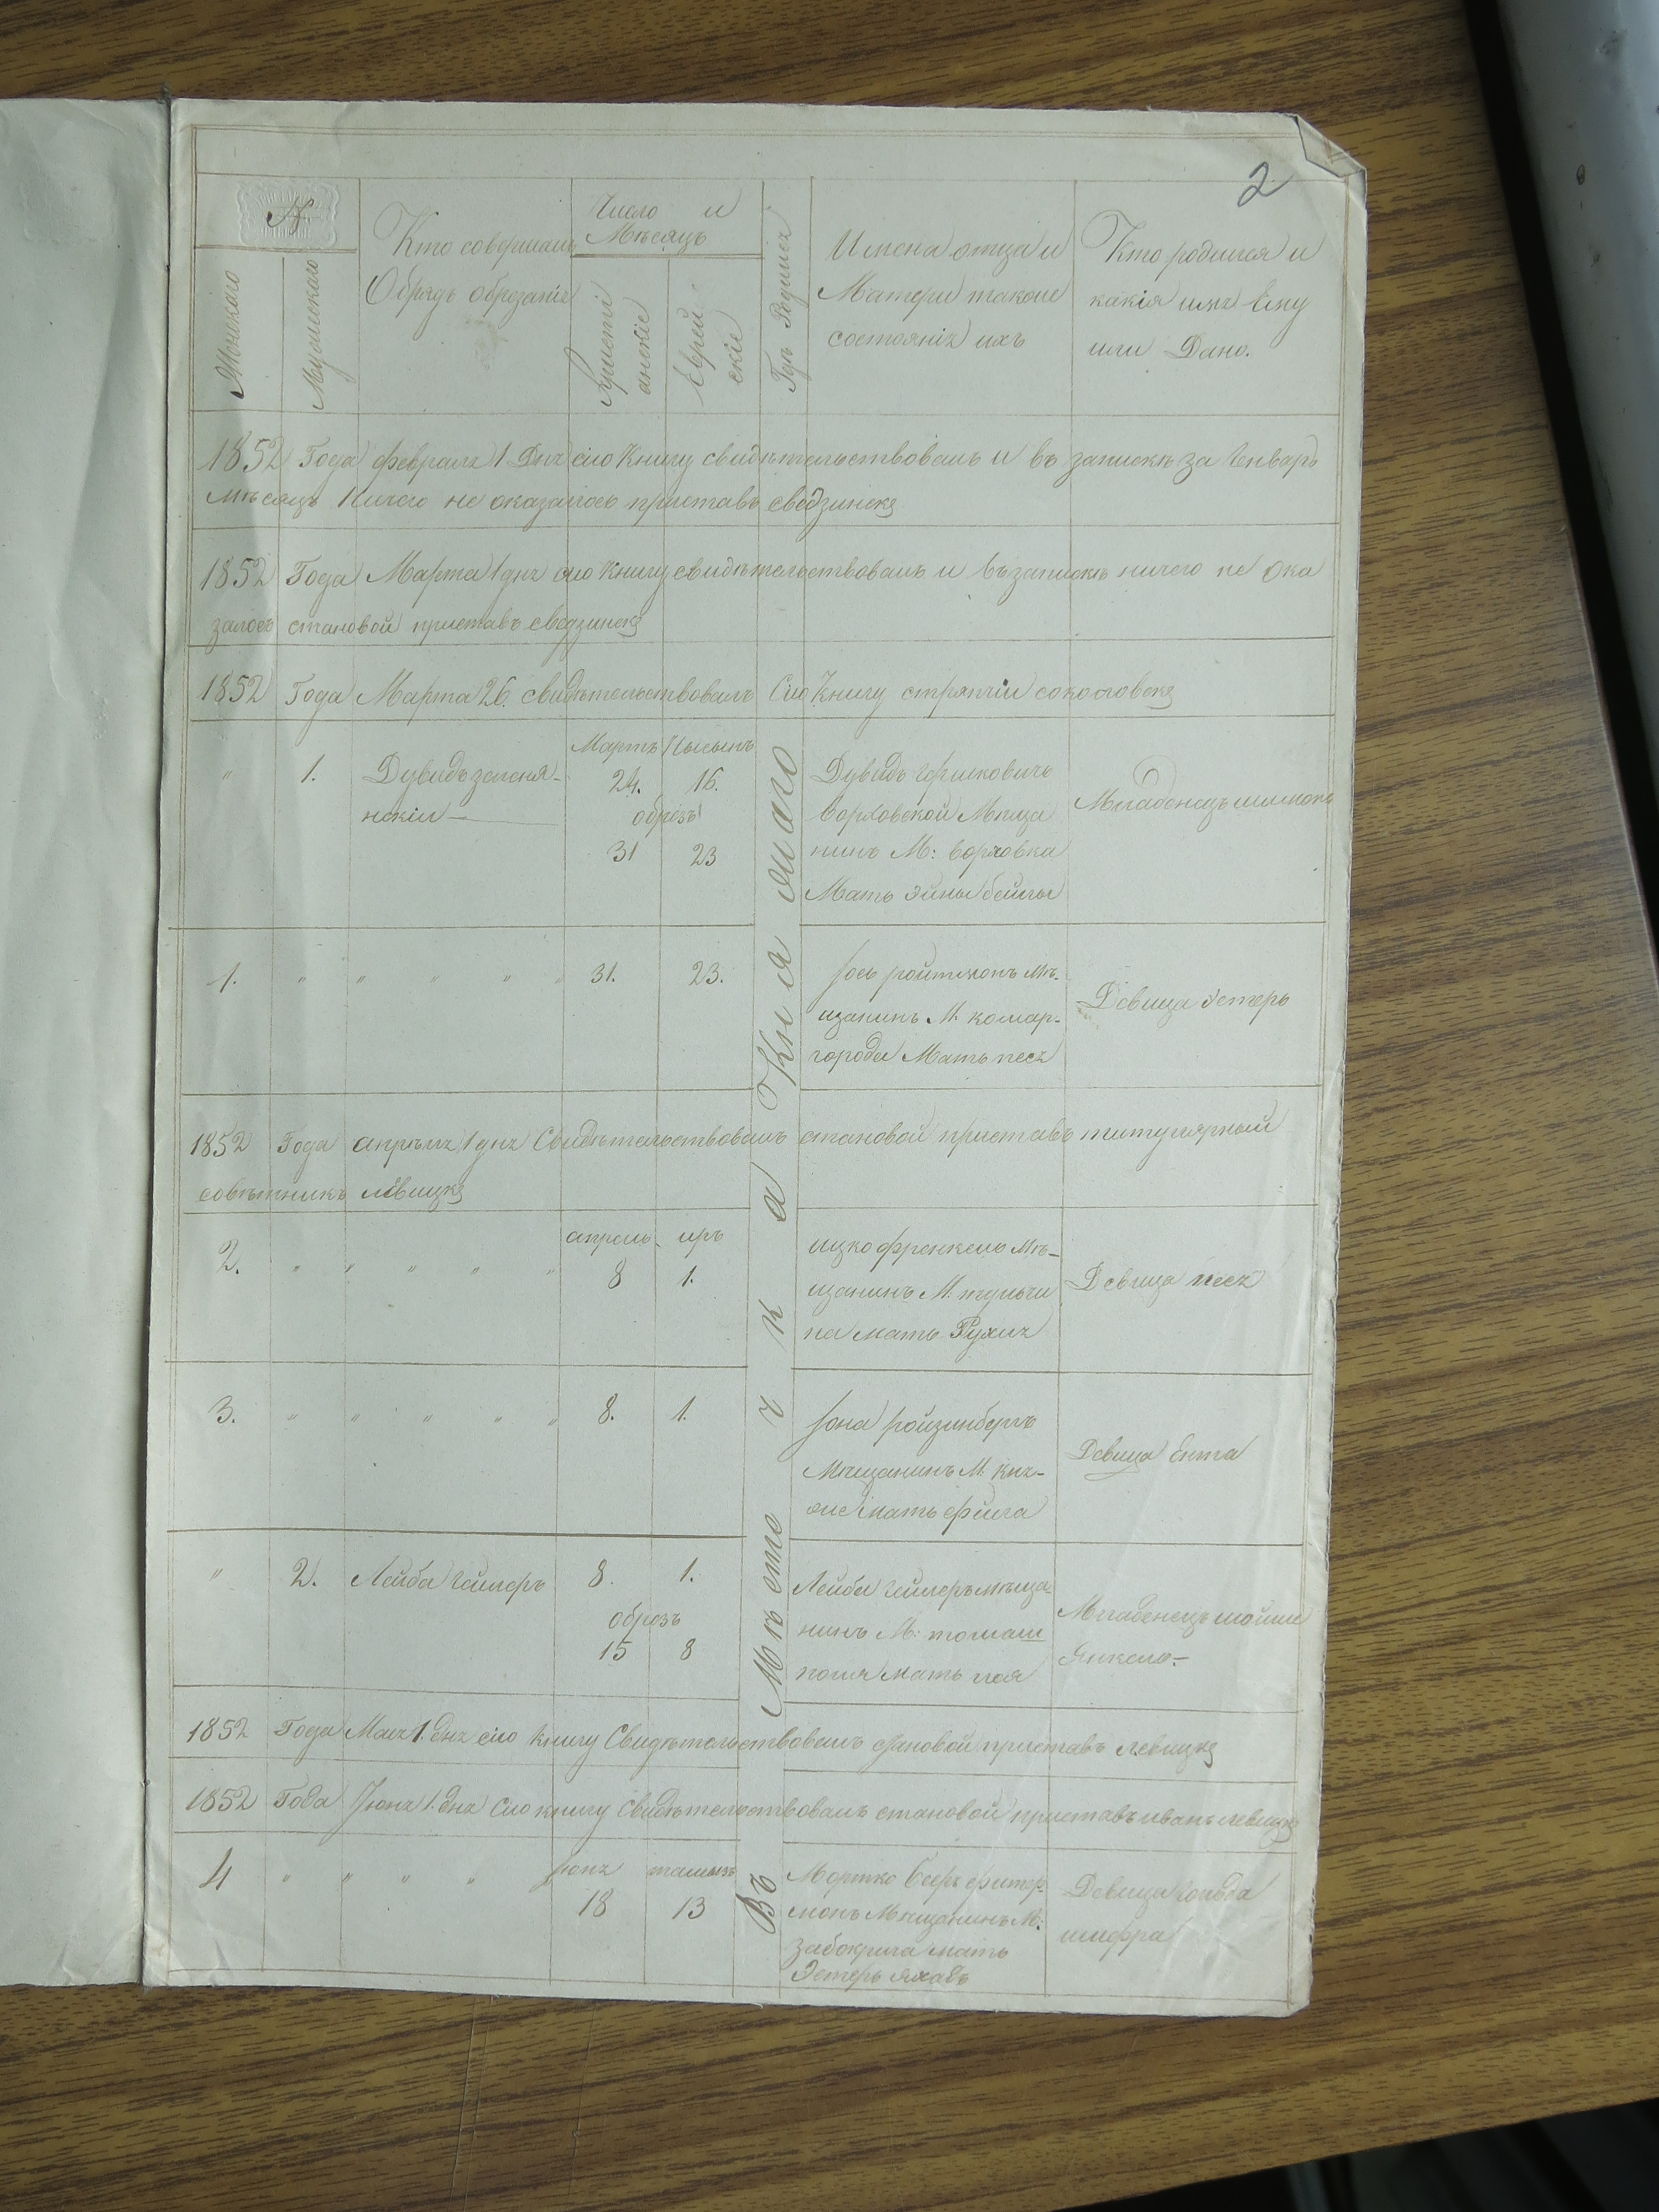 2
№
Женскаго
Мужескаго
Кто совершалъ
Обрядъ обрезанія
Число и
Мѣсяцъ
Христі
анскіе
Еврей
скіе
Гдѣ Родился
Имена отца и
Матери такоже
состоянія ихъ
Кто родился и
какія имя Ему
или Дано.
1852 Года февраля 1 Дня сію Книгу свидѣтельствовалъ и въ запискѣ за Генварь
мѣсяцъ Ничего не оказалось приставъ
1852 Года Марта 1 дня сію Книгу свидѣтельствовалъ и въ запискѣ ничего не Ока
залось становой приставъ
1852 Года Марта 26. свидѣтельствовалъ Сію Книгу стряпчіи соколовскій
" 1. Дувидъ заслня-
нскіи —
Мартъ Нысынъ
24. 16.
обрезъ
31 23
Дувидъ
Мѣща
нинъ М:
Мать Эйны бейлы
Младенецъ шимонъ
1. " " " " " 31. 23.
Іось ройтманъ Мѣ-
щанинъ М. комар-
города Мать песя
Девица Эстерь
1852 Года апрѣля 1 дня Свидѣтельствовалъ становой приставъ титулярный
совѣтникъ левицкій
2. " " " " "
апрель иръ
8 1.
ицко френкель Мѣ-
щанинъ М. тульчи
на мать Рухля
Девица песя
3. " " " " " 8. 1.
Іона ройзинбергъ
Мѣщанинъ М. кня-
же мать фейга
Девица Ента
" 2. Лейба гейлеръ 8. 1.
обрезъ
15 8
Лейба гейлеръ мѣща
нинъ М: томаш
поля мать лея
Младенецъ мойше
Янкель.-
1852 Года Мая 1. дня сію книгу Свидѣтельствовалъ становой приставъ левицкій
1852 Года Іюня 1. дня Сію книгу свидѣтельствовалъ становой приставъ иванъ левицкій
4 " " " "
Іюня тамызъ
18 13
Мортко беръ фитер-
манъ Мѣщанинъ М:
забокрича мать
Эстерь
Девица гольда
шифра
Въ Мѣстечка Княжаго